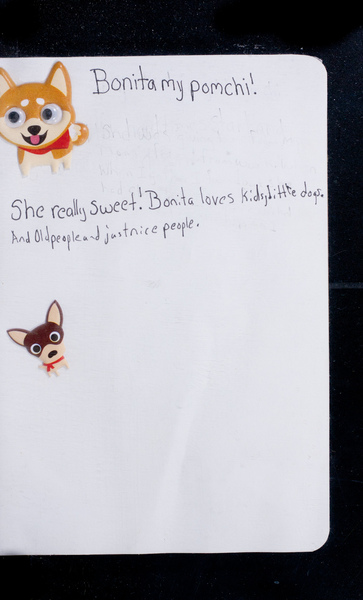 Bonita my pomchi!
She really sweet! Bonita loves kids, little dogs.
And Old people and just nice people.